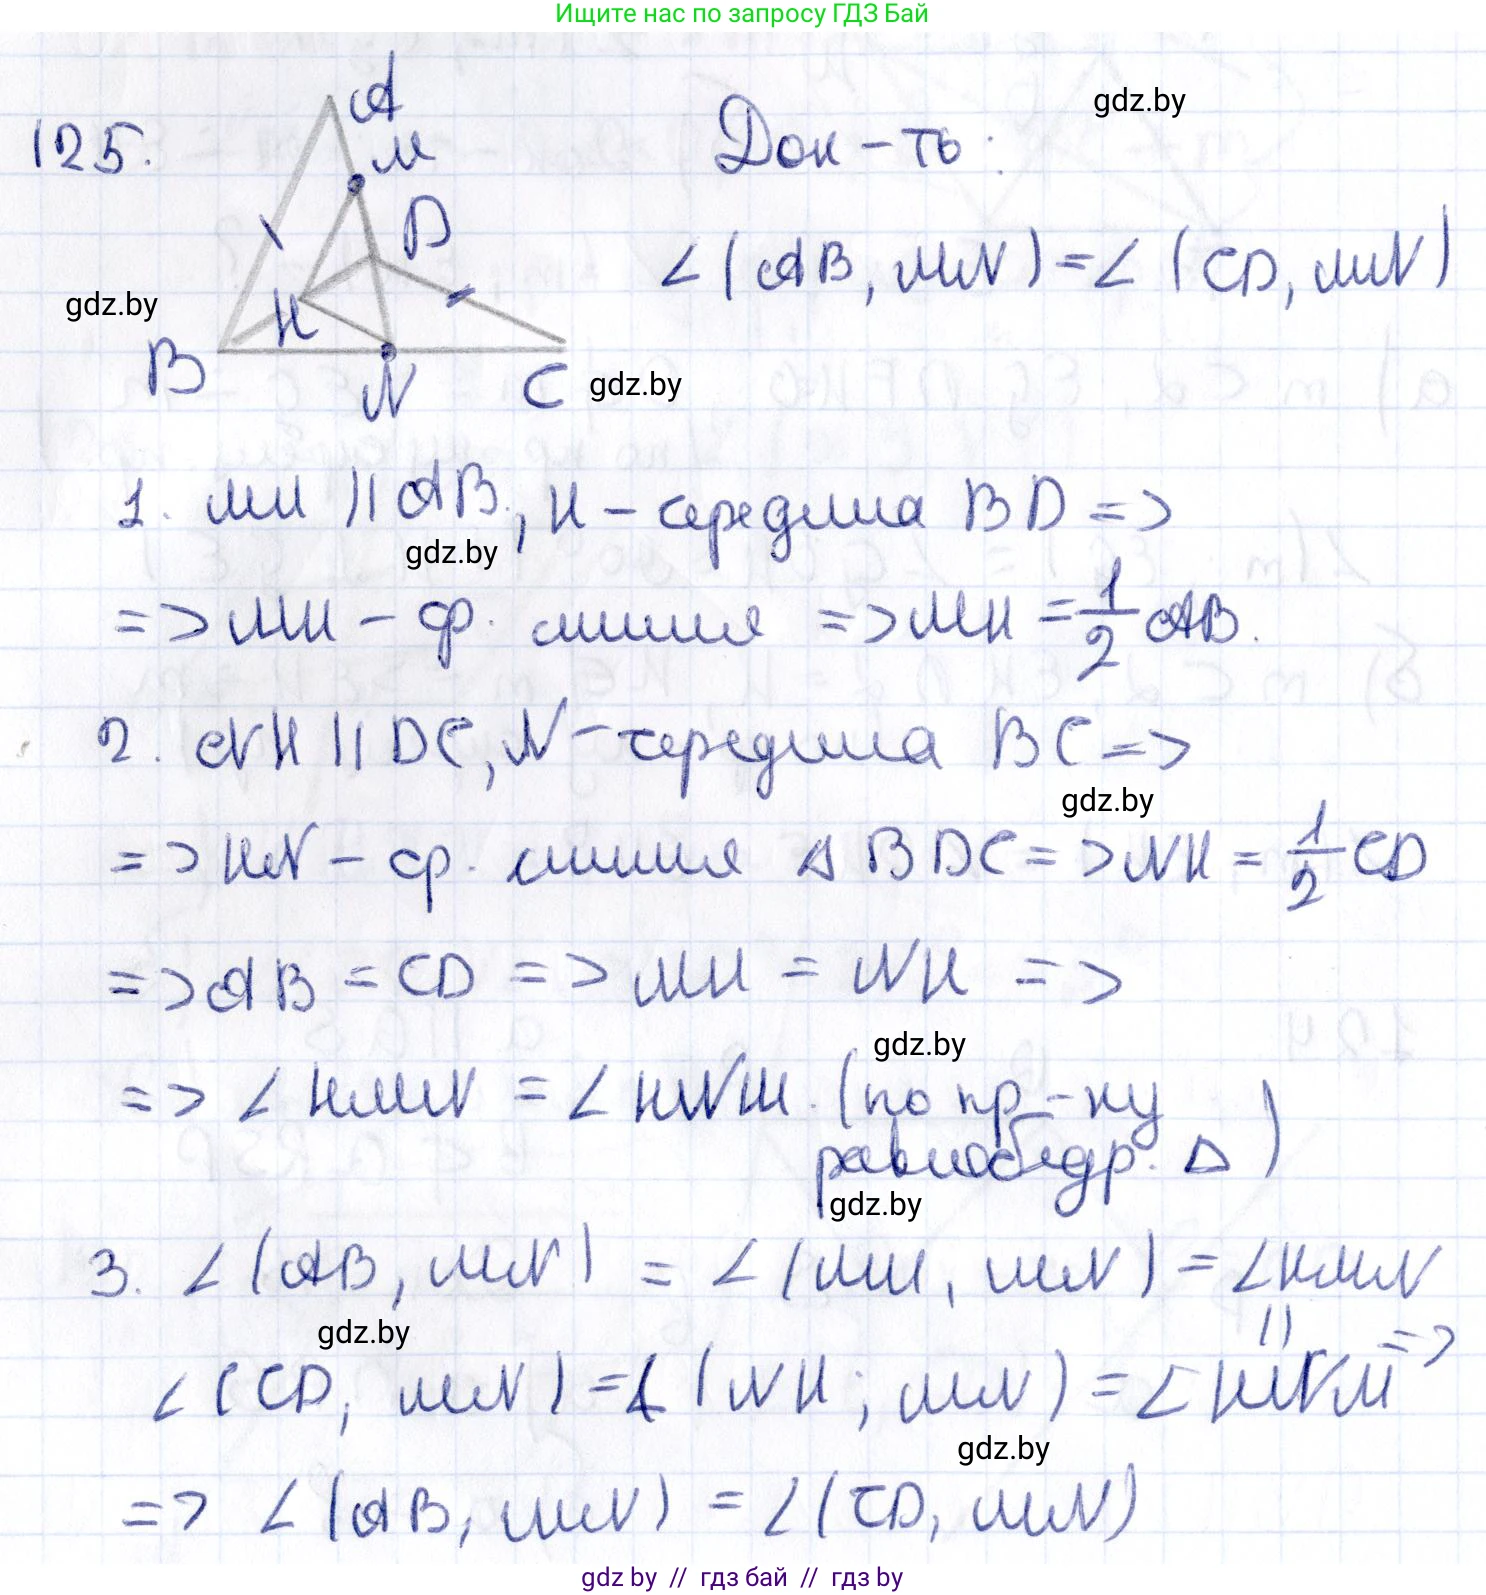 Ищите нас по запросу ГДЗ Бай
125.
A
M
D
H
B
N
C
Док-ть:
∠(AB, MN) = ∠(CD, MN)
gdz.by
gdz.by
gdz.by
1. MH || AB, H - середина BD =>
gdz.by
=> MH - ср. линия => MH = 1/2 AB.
2. NH || DC, N - середина BC =>
gdz.by
=> HN - ср. линия Δ BDC => NH = 1/2 CD
=> AB = CD => MH = NH =>
gdz.by
=> ∠HMN = ∠HNM. (по пр-ку
равнобедр. Δ)
gdz.by
3. ∠(AB, MN) = ∠(MH, MN) = ∠HMN
gdz.by
||
∠(CD, MN) = ∠(NH; MN) = ∠HNM =>
gdz.by
=> ∠(AB, MN) = ∠(CD, MN)
gdz.by // гдз бай // gdz.by